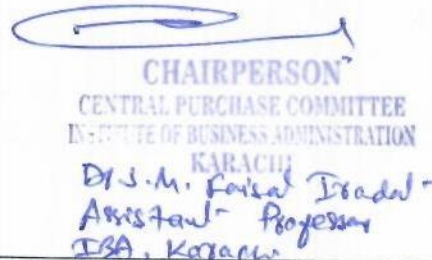 CHAIRPERSON
CENTRAL PURCHASE COMMITTEE
INSTITUTE OF BUSINESS ADMINISTRATION
KARACHI
Dr S.M. Faisal Iradat
Assistant Professor
IBA, Karachi